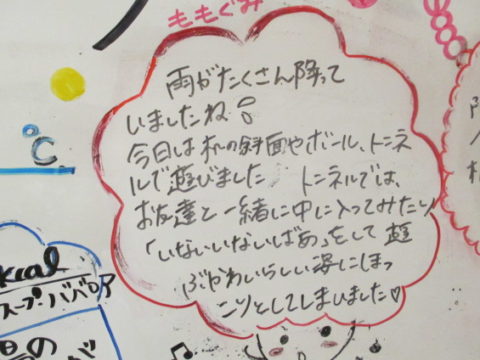 ももぐみ
雨がたくさん降って
いましたね。
今日は木の斜面やボール、トンネ
ルで遊びました トンネルでは、
お友達と一緒に中に入ってみたり、
「いないいないばあ」をして遊
ぶかわいらしい姿にほっ
こりとしてしまいました♡
℃
kcal
スープ・ババロア
の